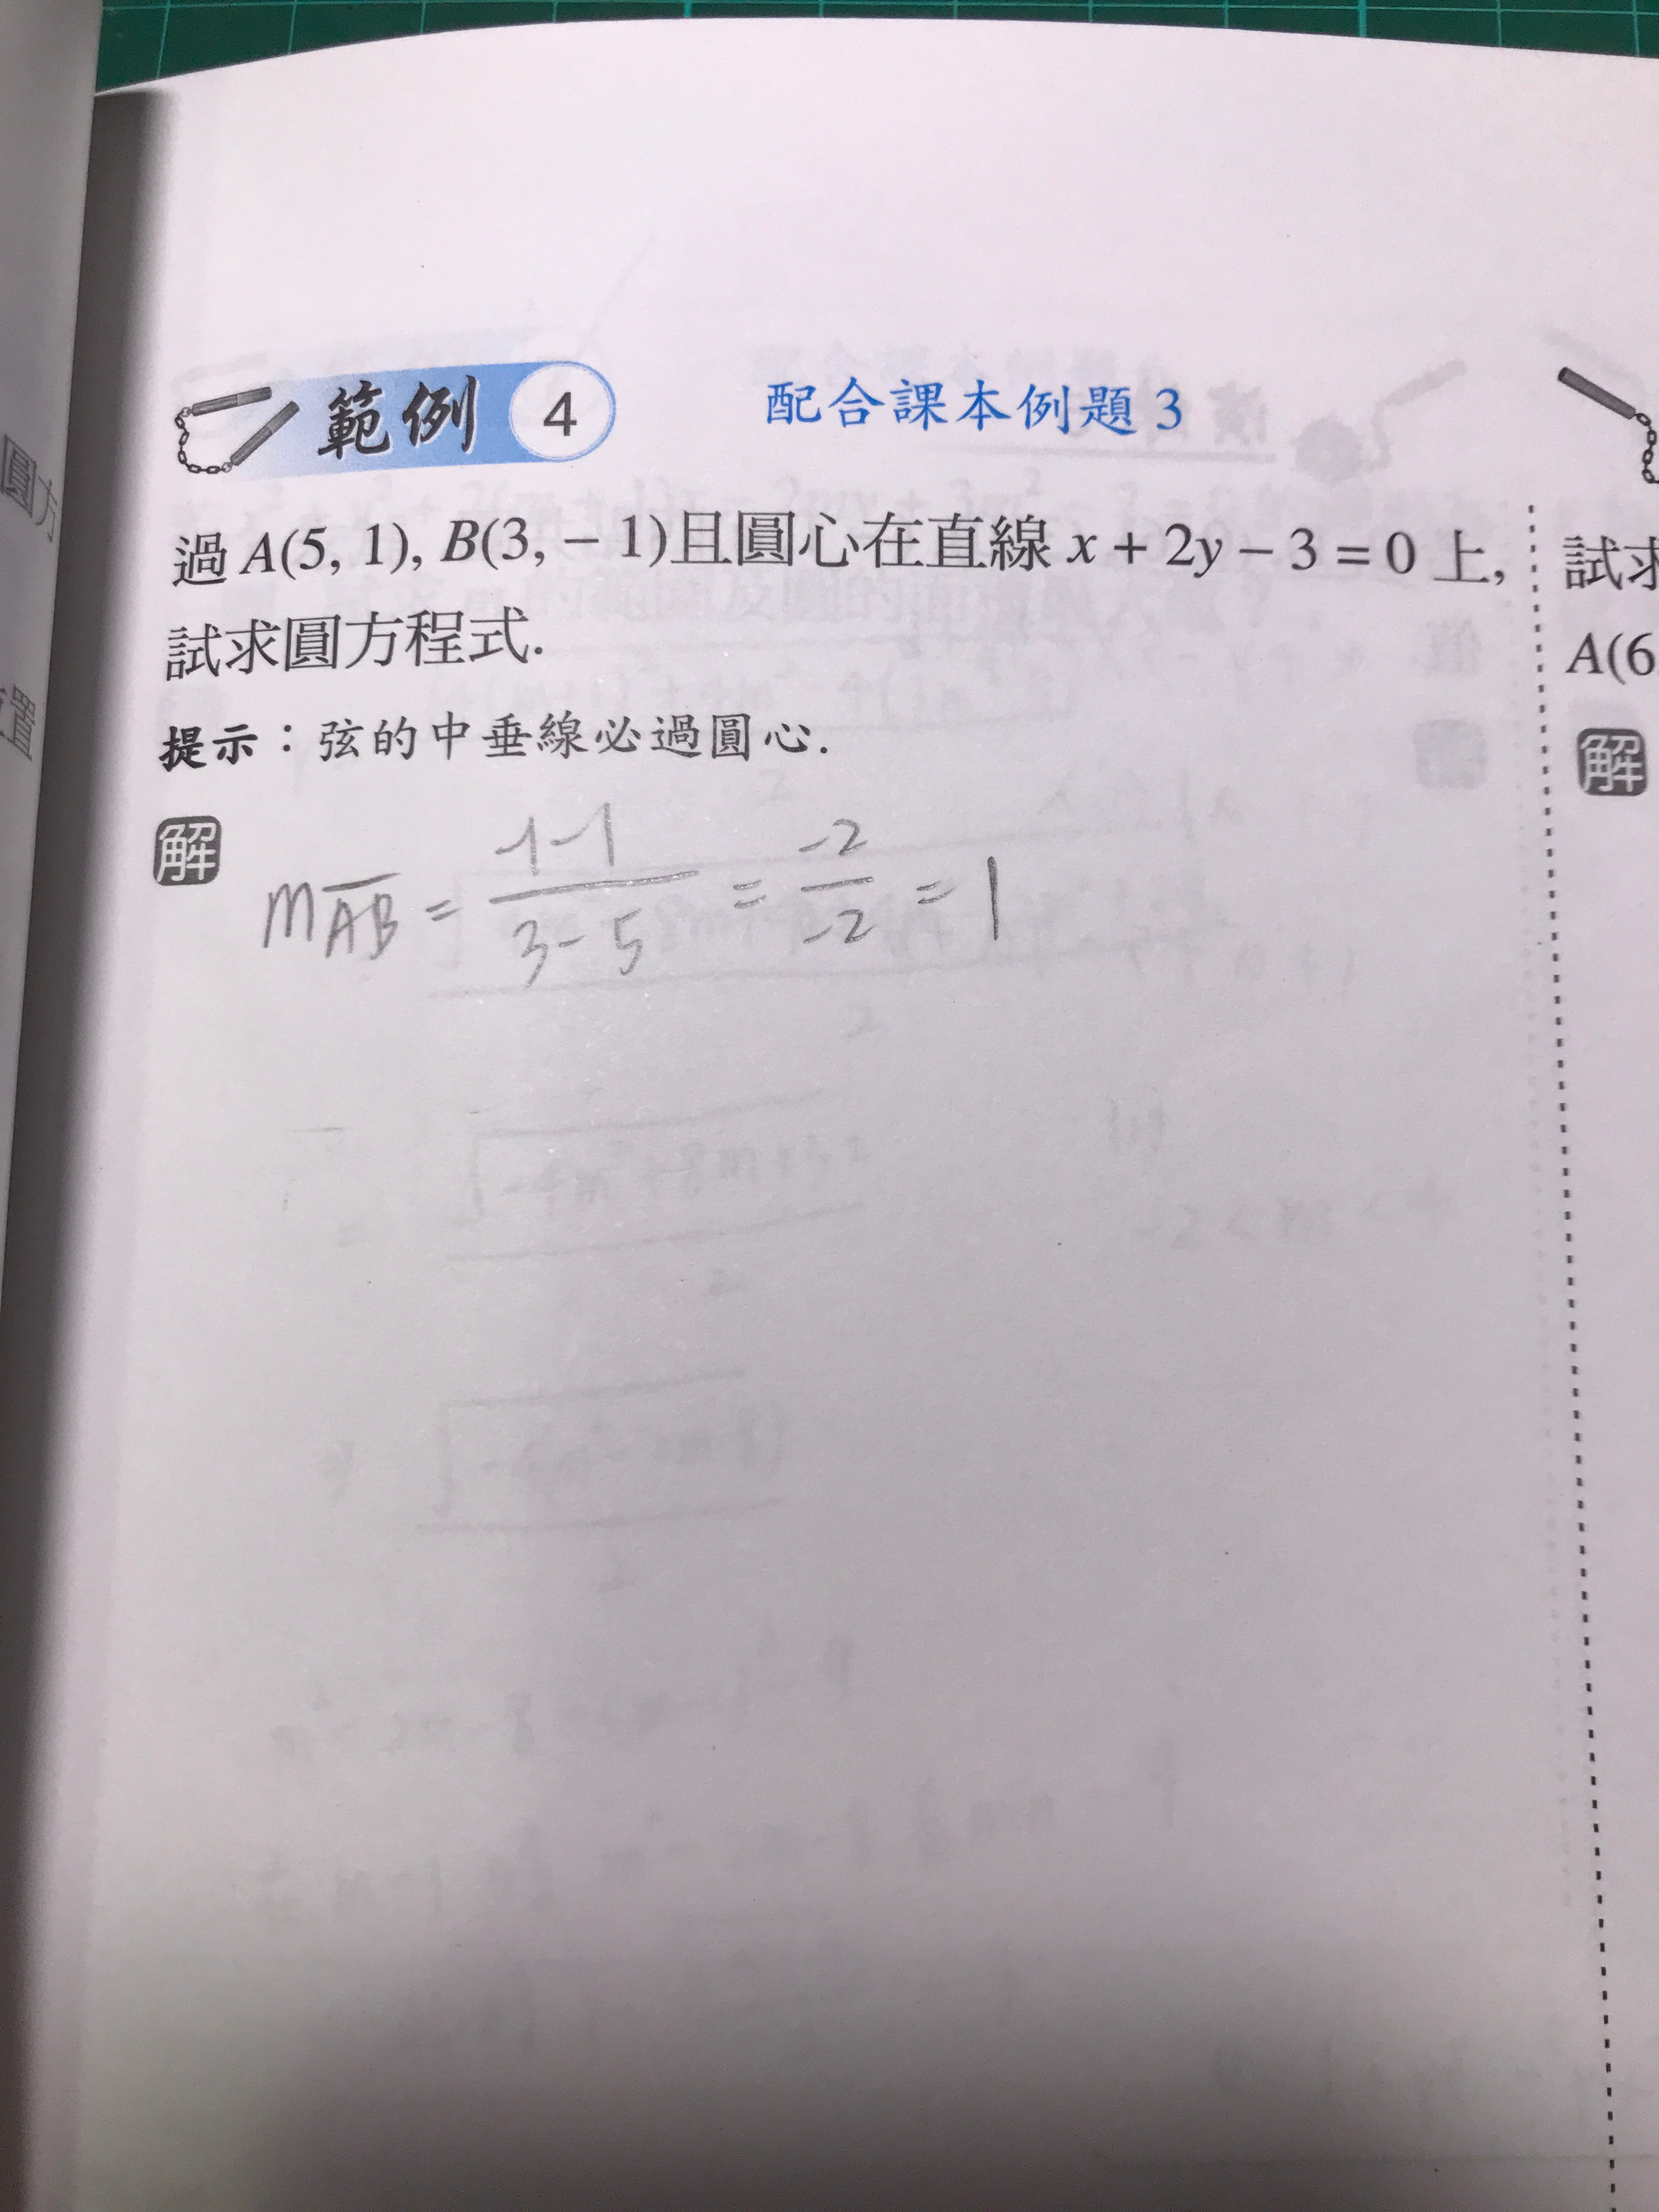 範例 4 配合課本例題 3
過 A(5, 1), B(3, − 1)且圓心在直線 x + 2y − 3 = 0 上,
試求圓方程式.
提示：弦的中垂線必過圓心.
解
m\overline{AB} = \frac{-1-1}{3-5} = \frac{-2}{-2} = 1
圓方
置
試求
A(6
解